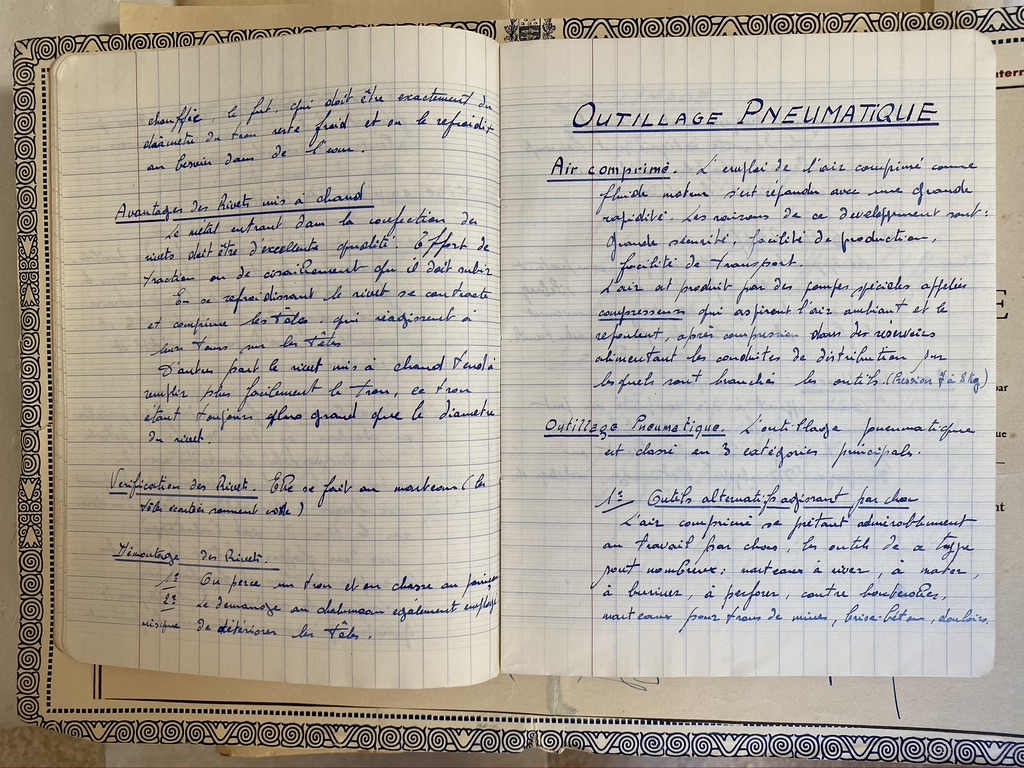 chauffée, le fut, qui doit être exactement du
diamètre du trou reste froid et on le refroidit
au besoin dans de l'eau.
Avantages des Rivets mis à chaud
Le métal entrant dans la confection des
rivets doit être d'excellente qualité. Effort de
traction ou de cisaillement qu'il doit subir
En se refroidissant le rivet se contracte
et comprime les tôles, qui réagissent à
leurs tours sur les têtes
D'autres part le rivet mis à chaud tend à
remplir plus facilement le trou, ce trou
étant toujours plus grand que le diamètre
du rivet.
Vérification des Rivets. Elle se fait au marteau (les
têtes écartées sonnent)
Démontage des Rivets.
1º On perce un trou et on chasse au
2º Le démontage au chalumeau également employé
risque de détériorer les tôles.
OUTILLAGE PNEUMATIQUE
Air comprimé. L'emploi de l'air comprimé comme
fluide moteur s'est répandu avec une grande
rapidité. Les raisons de ce developpement sont:
Grande sécurité, facilité de production,
facilité de transport.
L'air est produit par des pompes spéciales appelées
compresseurs qui aspirent l'air ambiant et le
refoulent, après compression dans des réservoirs
alimentant les conduites de distribution sur
lesquels sont branchés les outils. (Pression 7 à 8 kg)
Outillage Pneumatique. L'outillage pneumatique
est classé en 3 catégories principals.
1º Outils alternatifs agissant par choc
L'air comprimé se prêtant admirablement
au travail par chocs, les outils de ce type
sont nombreux: marteaux à river, à mater,
à buriner, à perforer, contre bouterolles,
marteaux pour trous de mines, brise-bétons,